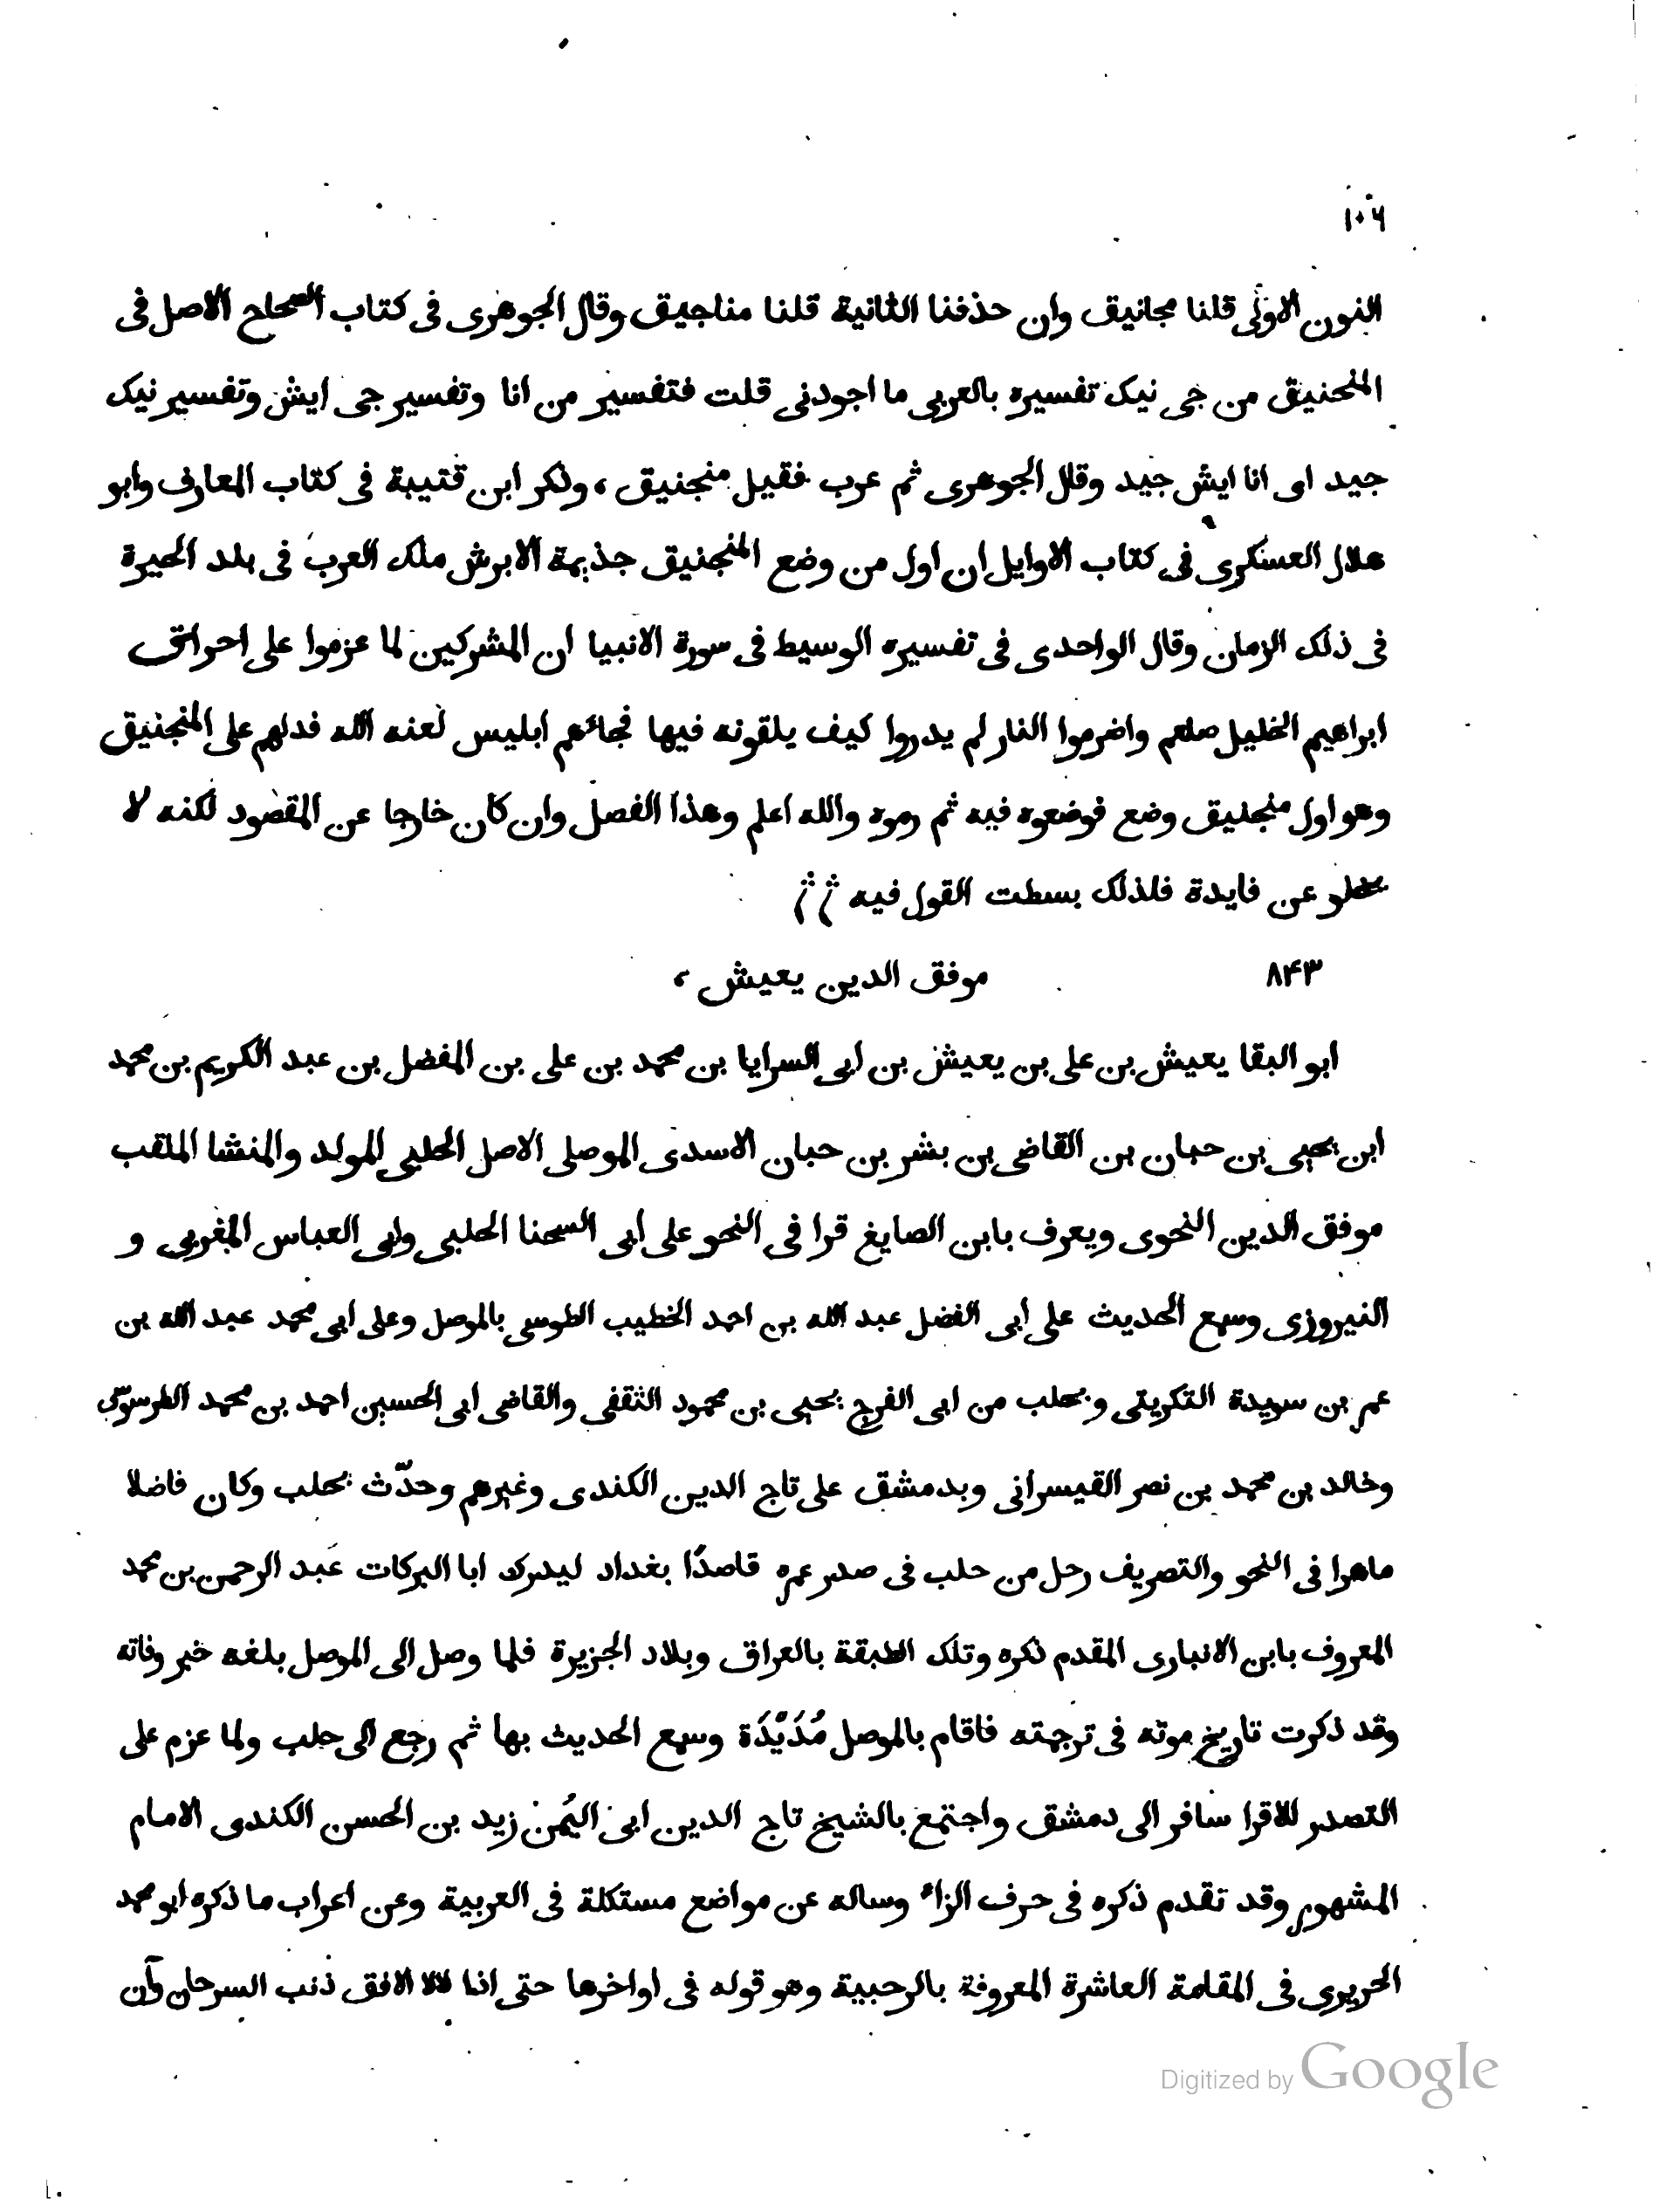 ١٠٦
النون الاولى قلنا مجانيق وان حذفنا الثانية قلنا مناجيق وقال الجوهرى فى كتاب الصحاح الاصل فى
المنجنيق من جى نيك تفسيره بالعربى ما اجودنى قلت فتفسير من انا وتفسير جى ايش وتفسير نيك
جيد اى انا ايش جيد وقال الجوهرى ثم عرب فقيل منجنيق ، وذكر ابن قتيبة فى كتاب المعارف وابو
هلال العسكرى فى كتاب الاوايل ان اول من وضع المنجنيق جذيمة الابرش ملك العرب فى بلد الحيرة
فى ذلك الزمان وقال الواحدى فى تفسيره الوسيط فى سورة الانبيا ان المشركين لما عزموا على احراق
ابراهيم الخليل صلعم واضرموا النار لم يدروا كيف يلقونه فيها فجائهم ابليس لعنه الله فدلهم على المنجنيق
وهو اول منجنيق وضع فوضعوه فيه ثم رموه والله اعلم وهذا الفصل وان كان خارجا عن المقصود لكنه لا
يخلو عن فايدة فلذلك بسطت القول فيه
٨۴٣ موفق الدين يعيش ،
ابو البقا يعيش بن على بن يعيش بن ابى السرايا بن محمد بن على بن المفضل بن عبد الكريم بن محمد
ابن يحيى بن حبان بن القاضى بن بشر بن حبان الاسدى الموصلى الاصل الحلبى المولد والمنشا الملقب
موفق الدين النحوى ويعرف بابن الصايغ قرا فى النحو على ابى السحنا الحلبى وابى العباس المغربى و
النيروزى وسمع الحديث على ابى الفضل عبد الله بن احمد الخطيب الطوسى بالموصل وعلى ابى محمد عبد الله بن
عمر بن سويدة التكريتى وبحلب من ابى الفرج يحيى بن محمود الثقفى والقاضى ابى الحسين احمد بن محمد الطرسوسى
وخالد بن محمد بن نصر القيسرانى وبدمشق على تاج الدين الكندى وغيرهم وحدّث بحلب وكان فاضلا
ماهرا فى النحو والتصريف رحل من حلب فى صدر عمره قاصدًا بغداد ليدرك ابا البركات عبد الرحمن بن محمد
المعروف بابن الانبارى المقدم ذكره وتلك الطبقة بالعراق وبلاد الجزيرة فلما وصل الى الموصل بلغه خبر وفاته
وقد ذكرت تاريخ موته فى ترجمته فاقام بالموصل مُدَيْدَة وسمع الحديث بها ثم رجع الى حلب ولما عزم على
التصدر للاقرا سافر الى دمشق واجتمع بالشيخ تاج الدين ابى اليُمن زيد بن الحسن الكندى الامام
المشهور وقد تقدم ذكره فى حرف الزاء وساله عن مواضع مستكلة فى العربية وعن اعراب ما ذكره ابو محمد
الحريرى فى المقامة العاشرة المعروفة بالرحبية وهو قوله فى اواخرها حتى اذا لالا الافق ذنب السرحان وآن
Digitized by Google